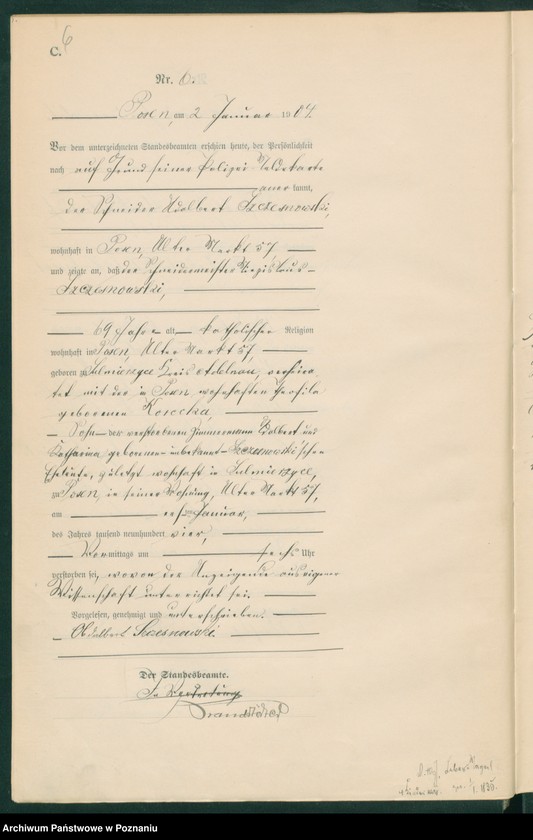 C.
6
Nr. 6.
Posen, am 2 Januar 1904.
Vor dem unterzeichneten Standesbeamten erschien heute, der Persönlichkeit
nach auf Grund seiner Polizei Meldekarte
anerkannt,
der Schneider Adalbert Szczesnowski,
wohnhaft in Posen, Alter Markt 57
und zeigte an, daß der Schneidermeister
Szczesnowski,
69 Jahre alt, katholischer Religion
wohnhaft in Posen, Alter Markt 57,
geboren zu Sulmierzyce Kreis Adelnau, verheira-
tet mit der in Posen wohnhaften Theophila
geborenen
Sohn der verstorbenen Zimmermann Adalbert und
Katharina, geborenen unbekannt Szczesnowski'schen
Eheleute, zuletzt wohnhaft in Sulmierzyce,
zu Posen, in seiner Wohnung, Alter Markt 57,
am Januar,
des Jahres tausend neunhundert vier,
Vormittags um sechs Uhr
verstorben sei, wovon der Anzeigende aus eigener
Wissenschaft unterrichtet sei.
Vorgelesen, genehmigt und unterschrieben.
Adalbert Szczesnowski.
Der Standesbeamte.
In Vertretung
Archiwum Państwowe w Poznaniu